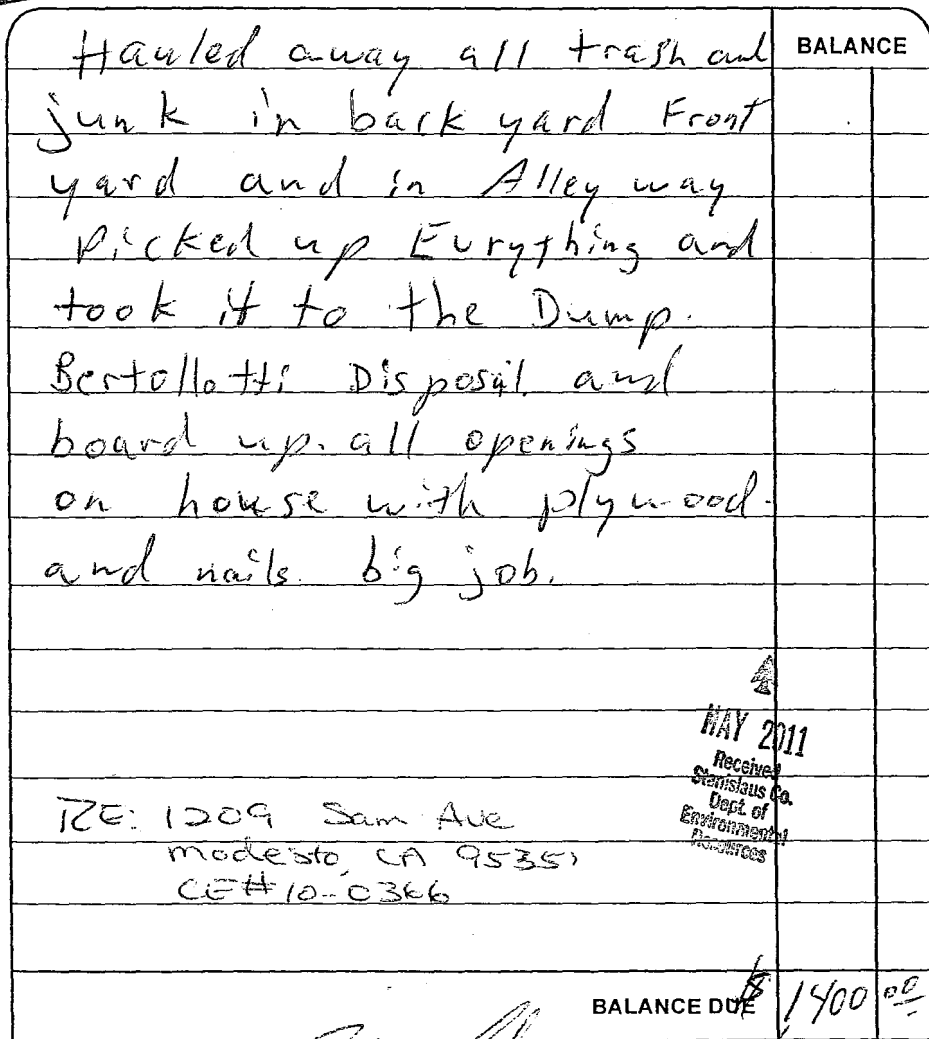 Hauled away all trash and
BALANCE
junk in back yard Front
yard and in Alley way
Picked up Eurything and
took it to the Dump.
Bertollotti Disposal and
board up. all openings
on house with plywood.
and nails. big job.
MAY 2011
Received
Stanislaus Co.
Dept. of
Environmental
Resources
RE: 1209 Sam Ave
modesto, CA 95351
CE# 10-0366
BALANCE DUE $ 1400 00